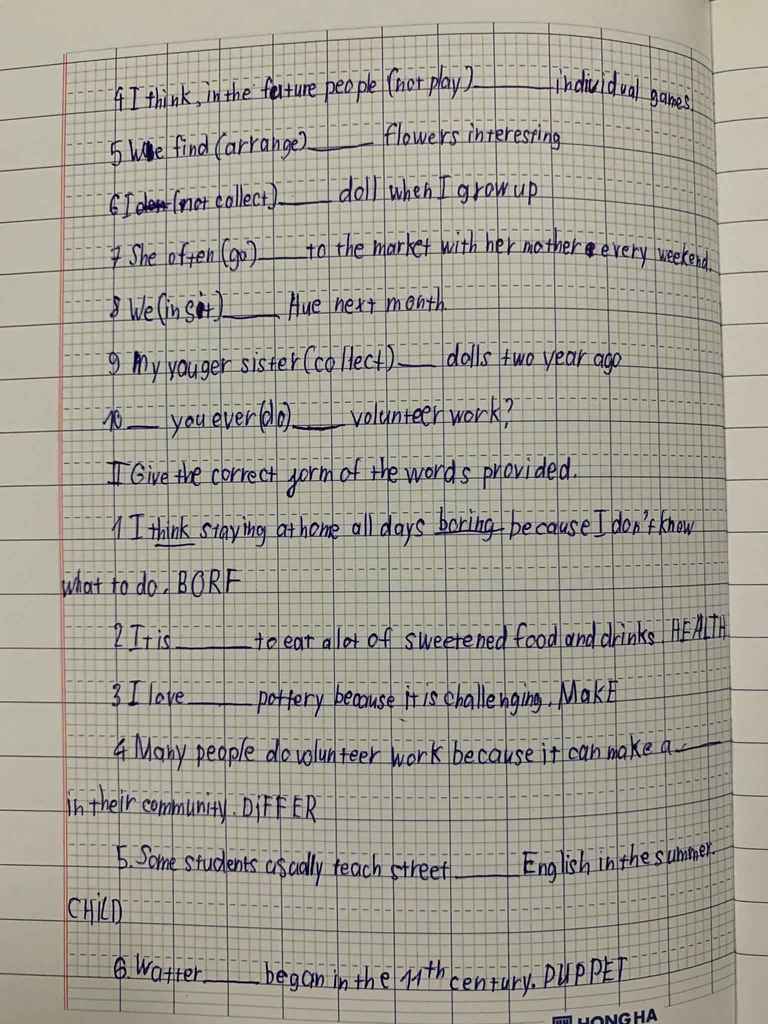 4 I think, in the future people (not play)______ individual games.
5 We find (arrange)______ flowers interesting
6 I (not collect)______ doll when I grow up
7 She often (go)______ to the market with her mother every weekend.
8 We (insit)______ Hue next month
9 My youger sister (collect)____ dolls two year ago
10 ___ you ever (do)_____ volunteer work?
II Give the correct form of the words provided.
1 I think staying at home all days boring because I don't know
what to do. BORE
2 It is ______ to eat a lot of sweetened food and drinks HEALTH
3 I love ______ pottery because it is challenging. MakE
4 Many people do volunteer work because it can make a ____
in their community. DiFFER
5. Some students usually teach street ______ English in the summer.
CHiLD
6. Watter ______ began in the 11th century. PUPPET
HONG HA